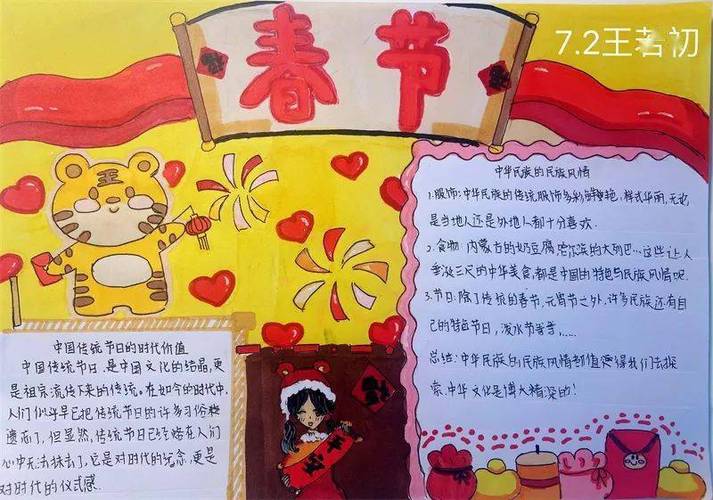 春节
7.2王若初
中华民族的民族风情
1.服饰:中华民族的传统服饰多彩鲜艳,样式华丽,无论
是当地人还是外地人都十分喜欢.
2.食物:内蒙方的奶豆腐,哈尔滨的大列巴...这些让人
垂涎三尺的中华美食,都是中国的特色与民族风情吧.
3.节日:除了传统的春节,元宵节之外,许多民族还有自
己的特色节日,泼水节等等,……
总结:中华民族的民族风情都值得我们去探
索,中华文化是博大精深的!
中国传统节日的时代价值
中国传统节日,是中国文化的结晶,更
是祖宗流传下来的传统。在如今的时代中,
人们似乎早已把传统节日的许多习俗给
遗忘了,但显然,传统节日已经烙在人们
心中无法抹去了,它是对时代的纪念,更是
对时代的仪式感.